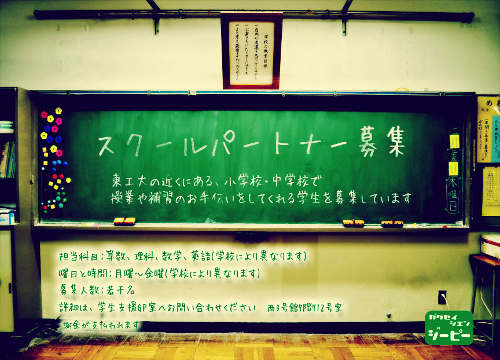 スクールパートナー募集
東工大の近くにある、小学校・中学校で
授業や補習のお手伝いをしてくれる学生を募集しています
担当科目：算数、理科、数学、英語(学校により異なります)
曜日と時間：月曜〜金曜(学校により異なります)
募集人数：若干名
詳細は、学生支援GP室へお問い合わせください
謝金が支払われます
木曜日
ガクセイ
シエン
ジーピー